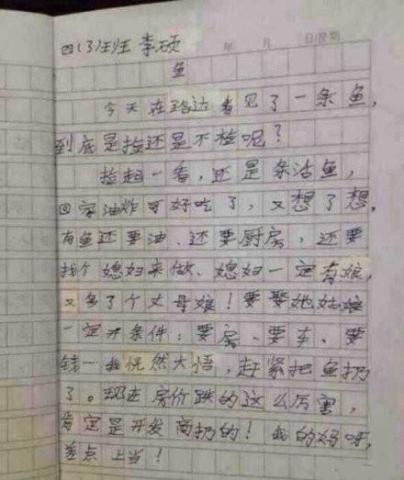 四(3)班 李硕
年 月 日 星期
鱼
今天在路边看见了一条鱼,
到底是捡还是不捡呢?
捡起一看,还是条活鱼,
回家油炸可好吃了,又想了想,
有鱼还要油、还要厨房,还要
找个媳妇来做、媳妇一定有娘,
又多了个丈母娘!要娶她姑娘
一定开条件:要房、要车、要
钱一我恍然大悟,赶紧把鱼扔
了。现在房价跌的这么厉害,
肯定是开发商扔的!我的妈呀,
差点上当!